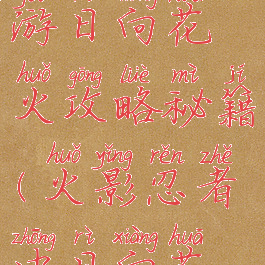 游日向花
huǒ gōng lüè mì jí
火攻略秘籍
huǒ yǐng rěn zhě
(火影忍者
zhōng rì xiàng huā
中日向花